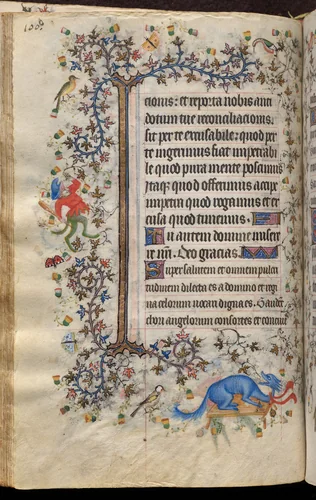 cionis: et reporta nobis anti
dotum tue reconciliacionis.
sit per te excusabile: quod per
te ingerimus fiat impetrabi
le quod pura mente poscimus
Itaq; quod offerimus accipe
impetra quod rogamus et ex
cusa quod timemus.
Tu autem domine miserere
nri. Deo gracias.
Super salutem et omnem pulcri
tudinem dilecta es a domino et regi
na celorum vocari digna es. Gaudet
chori angelorum consortes et concive